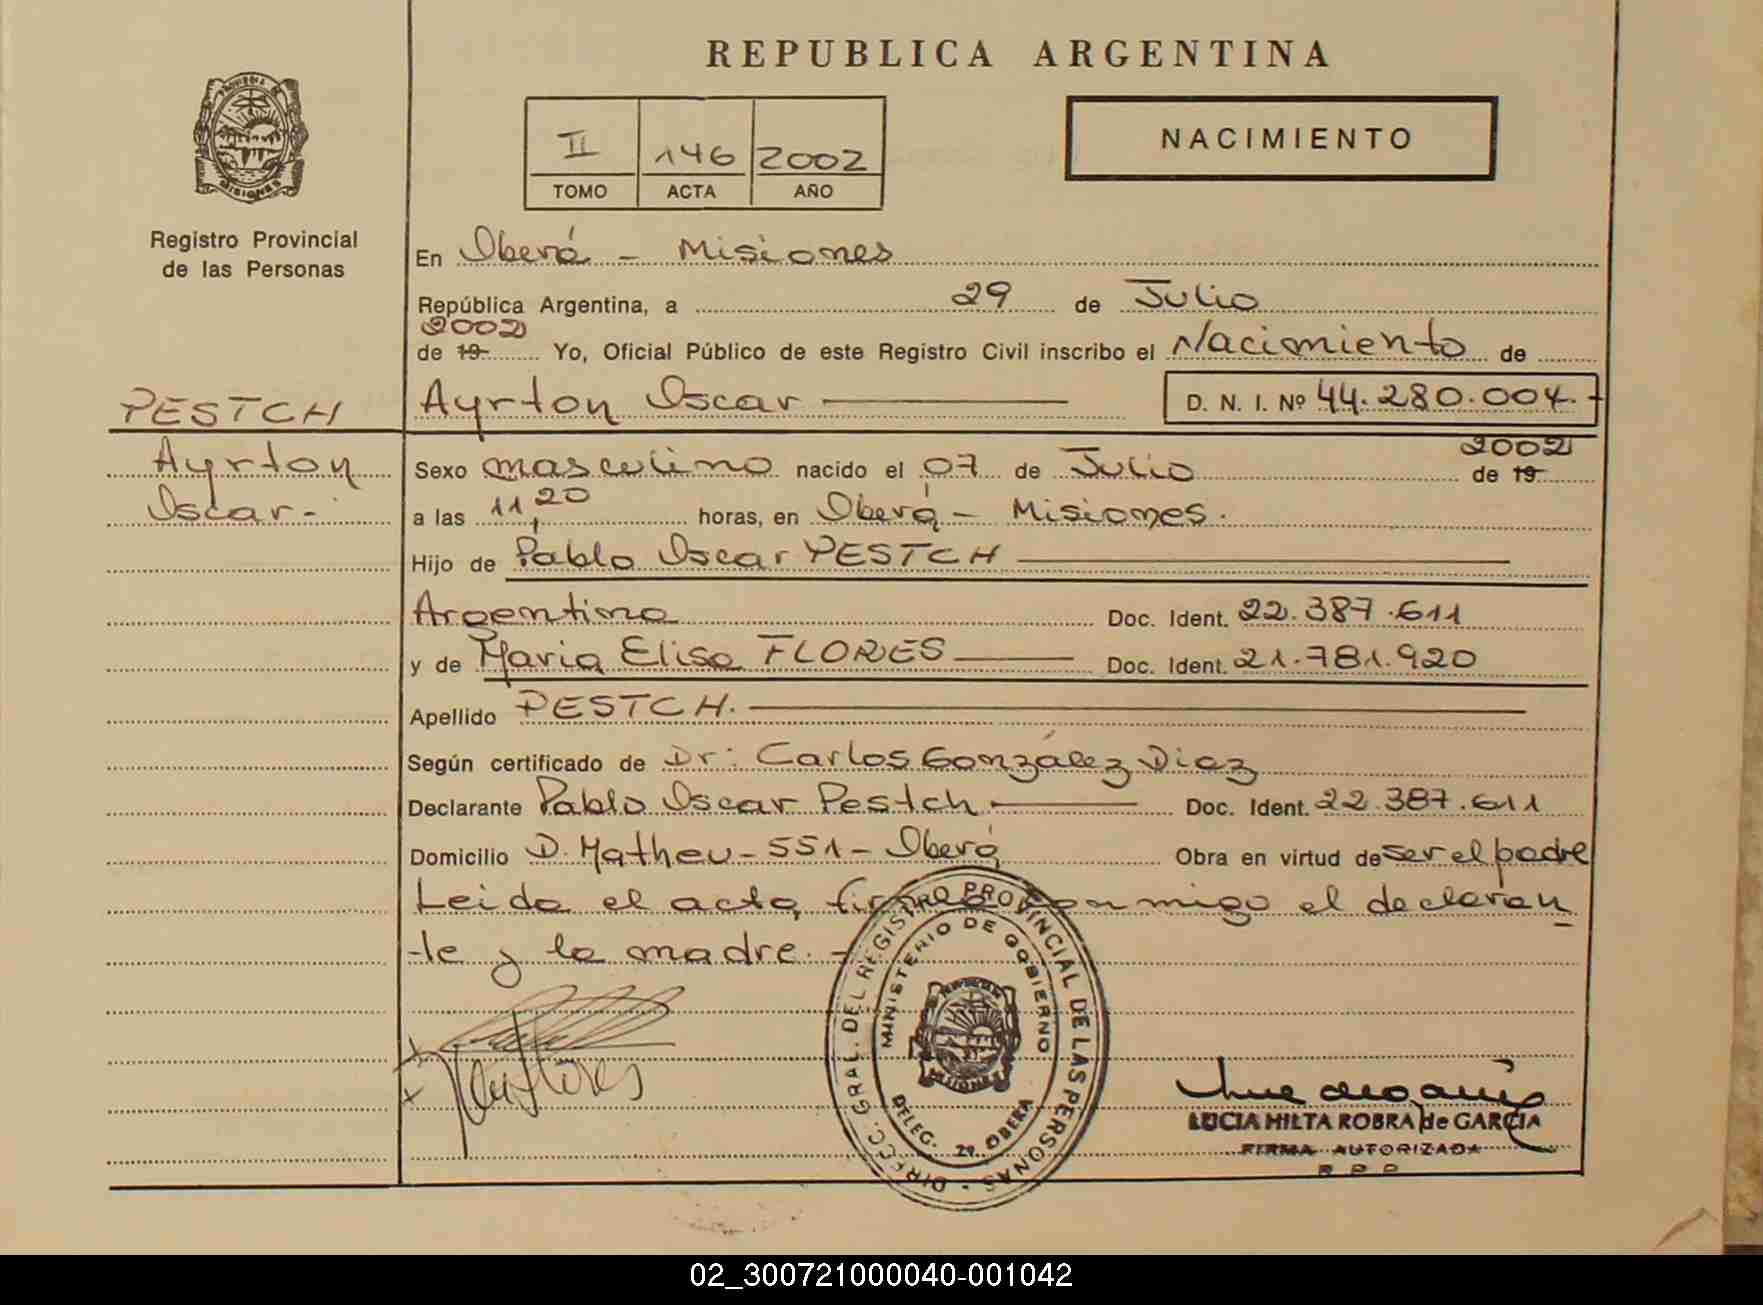 REPUBLICA ARGENTINA
II 146 2002
TOMO ACTA AÑO
NACIMIENTO
PROVINCIA DE
MISIONES
Registro Provincial
de las Personas
En Oberá - Misiones
República Argentina, a 29 de Julio
2002
de 19 Yo, Oficial Público de este Registro Civil inscribo el Nacimiento de
PESTCH
Ayrton Oscar
D. N. I. Nº 44.280.004.-
Ayrton
Oscar.-
2002
Sexo masculino nacido el 07 de Julio de 19
a las 11,20 horas, en Oberá - Misiones.
Hijo de Pablo Oscar PESTCH
Argentino Doc. Ident. 22.387.611
y de Maria Elisa FLORES Doc. Ident. 21.781.920
Apellido PESTCH.
Según certificado de Dr: Carlos González Diaz
Declarante Pablo Oscar Pestch Doc. Ident. 22.387.611
Domicilio D. Matheu - 551 - Oberá Obra en virtud de ser el padre
Leida el acta, firman conmigo el declaran
te y la madre.-
DIRECC. GRAL. DEL REGISTRO PROVINCIAL DE LAS PERSONAS -
MINISTERIO DE GOBIERNO
MISIONES
DELEG. 2ª OBERA
Flores
LUCIA HILTA ROBRA de GARCIA
FIRMA AUTORIZADA
R P P
02_300721000040-001042